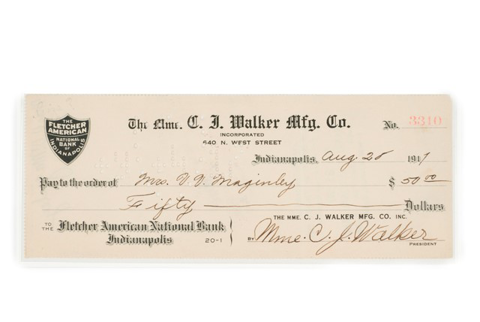 THE
FLETCHER
AMERICAN
NATIONAL
BANK
OF
INDIANAPOLIS
The Mme. C. J. Walker Mfg. Co.
INCORPORATED
640 N. WEST STREET
No. 3310
Indianapolis, Aug. 28 1917
Pay to the order of Mrs. V. V. Maginley $ 50 00
Fifty Dollars
TO THE Fletcher American National Bank
Indianapolis 20-1
THE MME. C. J. WALKER MFG. CO. INC.
BY Mme. C. J. Walker
PRESIDENT